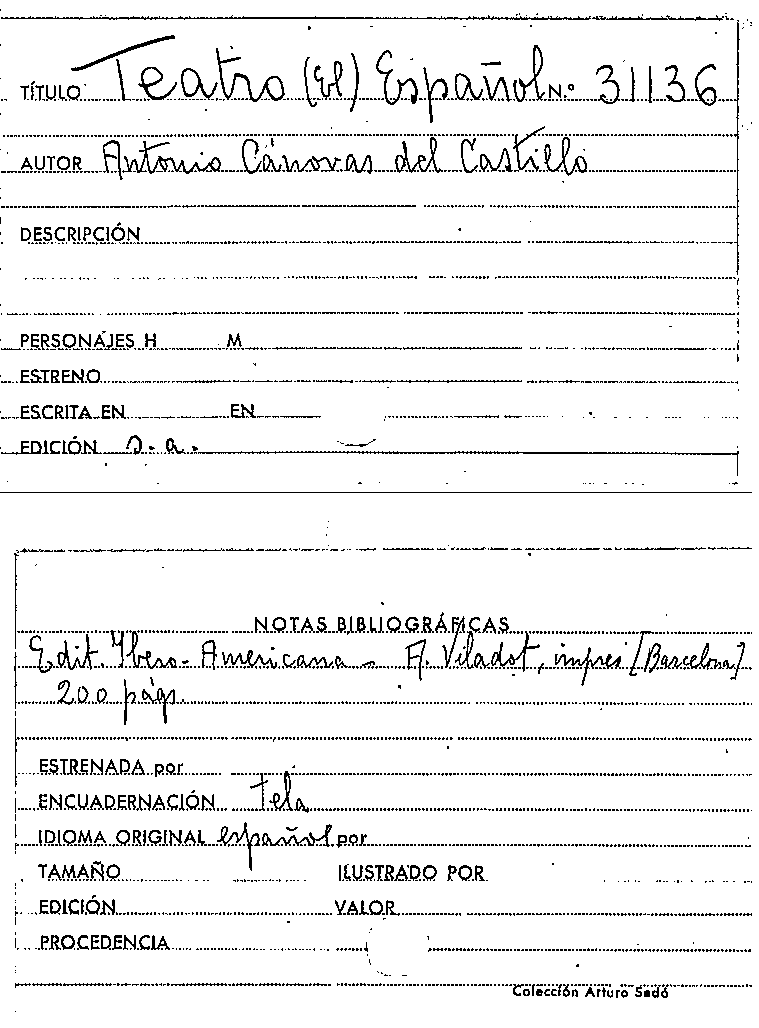 TÍTULO Teatro (El) Español N.º 31136
AUTOR Antonio Cánovas del Castillo
DESCRIPCIÓN
PERSONAJES H M
ESTRENO
ESCRITA EN EN
EDICIÓN s.a.
NOTAS BIBLIOGRÁFICAS
Edit. Ybero-Americana - A. Viladot, impres [Barcelona]
200 págs.
ESTRENADA por
ENCUADERNACIÓN Tela
IDIOMA ORIGINAL español por
TAMAÑO ILUSTRADO POR
EDICIÓN VALOR
PROCEDENCIA
Colección Arturo Sedó